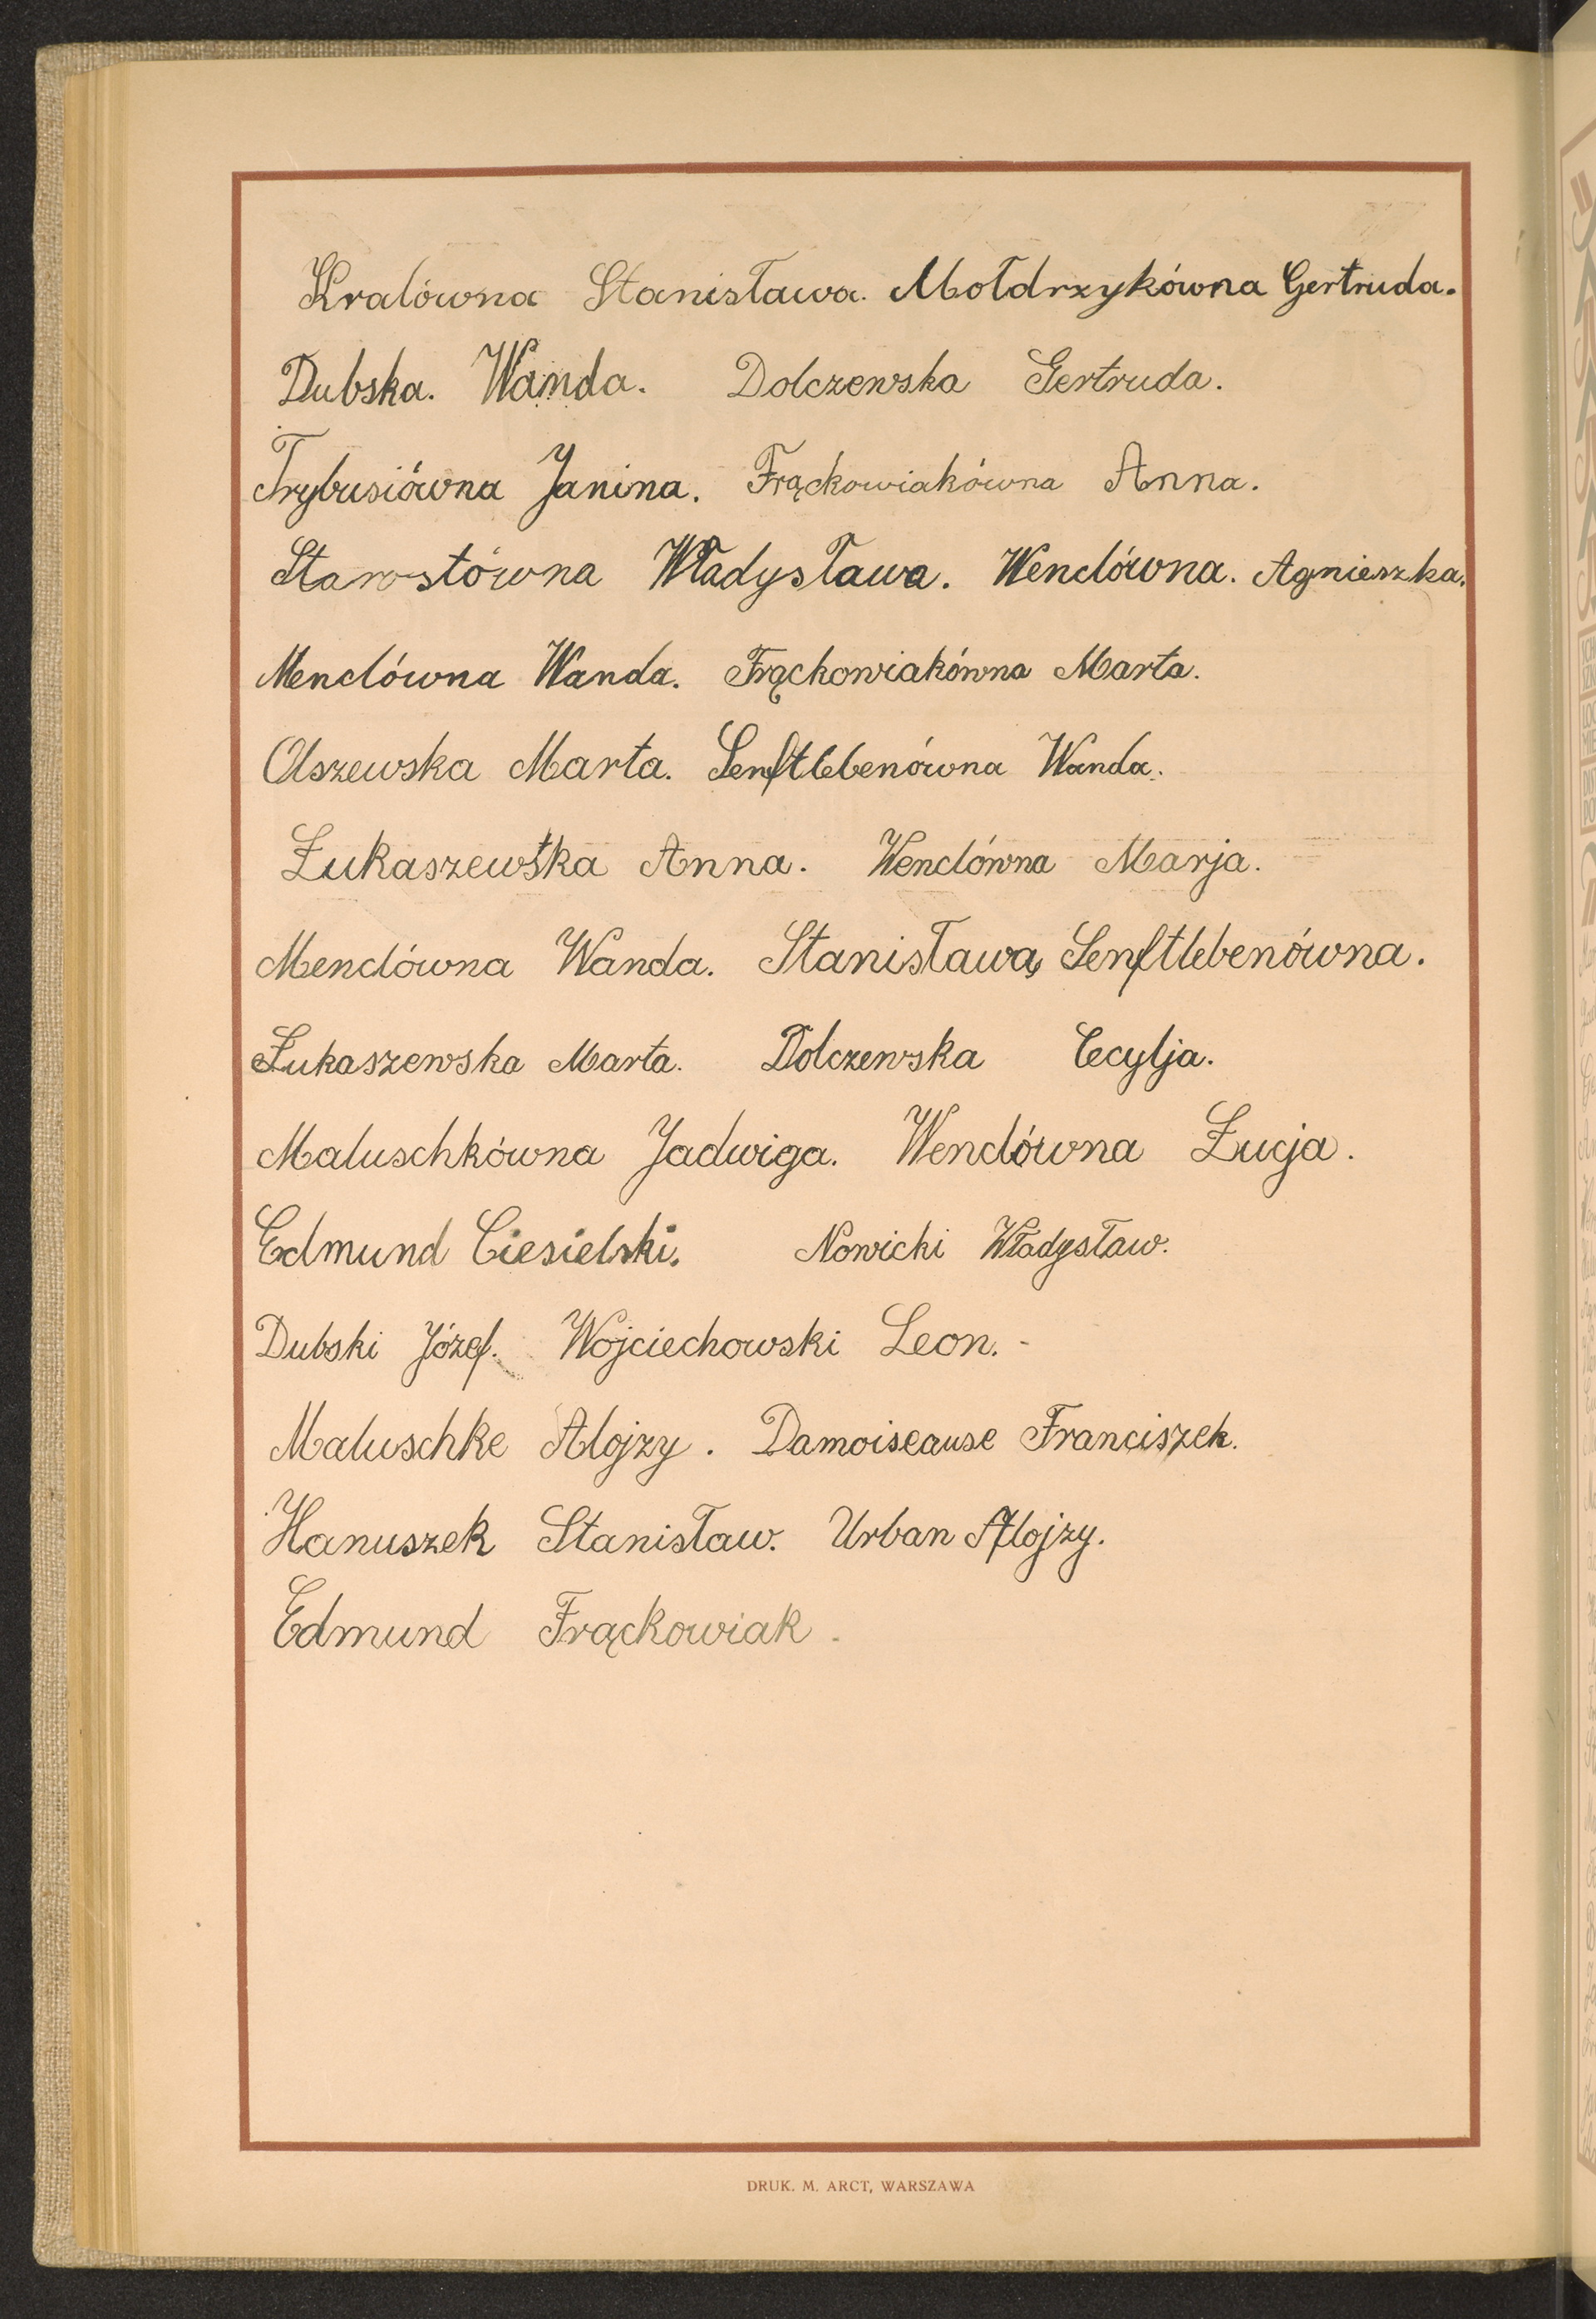 Kralówna Stanisława. Mołdrzykówna Gertruda.
Dubska. Wanda. Dolczewska Gertruda.
Trybusiówna Janina. Frąckowiakówna Anna.
Starostówna Władysława. Wenclówna. Agnieszka.
Menclówna Wanda. Frąckowiakówna Marta.
Olszewska Marta. Senftlebenówna Wanda.
Łukaszewska Anna. Wenclówna Marja.
Menclówna Wanda. Stanisława Senftlebenówna.
Łukaszewska Marta. Dolczewska Cecylja.
Maluschkówna Jadwiga. Wenclówna Łucja.
Edmund Ciesielski. Nowicki Władysław.
Dubski Józef. Wojciechowski Leon. -
Maluschke Alojzy. Damoiseause Franciszek.
Hanuszek Stanisław. Urban Alojzy.
Edmund Frąckowiak.
DRUK. M. ARCT, WARSZAWA